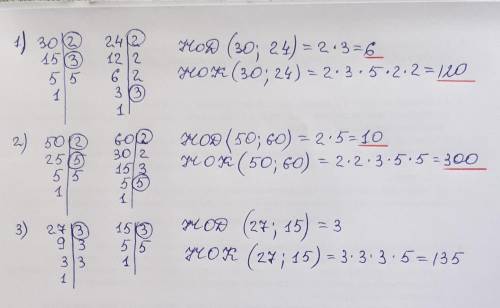 1) 30 | 2 24 | 2 НОД (30; 24) = 2·3 = 6
15 | 3 12 | 2 НОК (30; 24) = 2·3·5·2·2 = 120
5 | 5 6 | 2
1 | 3 | 3
1 |
2) 50 | 2 60 | 2 НОД (50; 60) = 2·5 = 10
25 | 5 30 | 2 НОК (50; 60) = 2·2·3·5·5 = 300
5 | 5 15 | 3
1 | 5 | 5
1 |
3) 27 | 3 15 | 3 НОД (27; 15) = 3
9 | 3 5 | 5
3 | 3 1 | НОК (27; 15) = 3·3·3·5 = 135
1 |